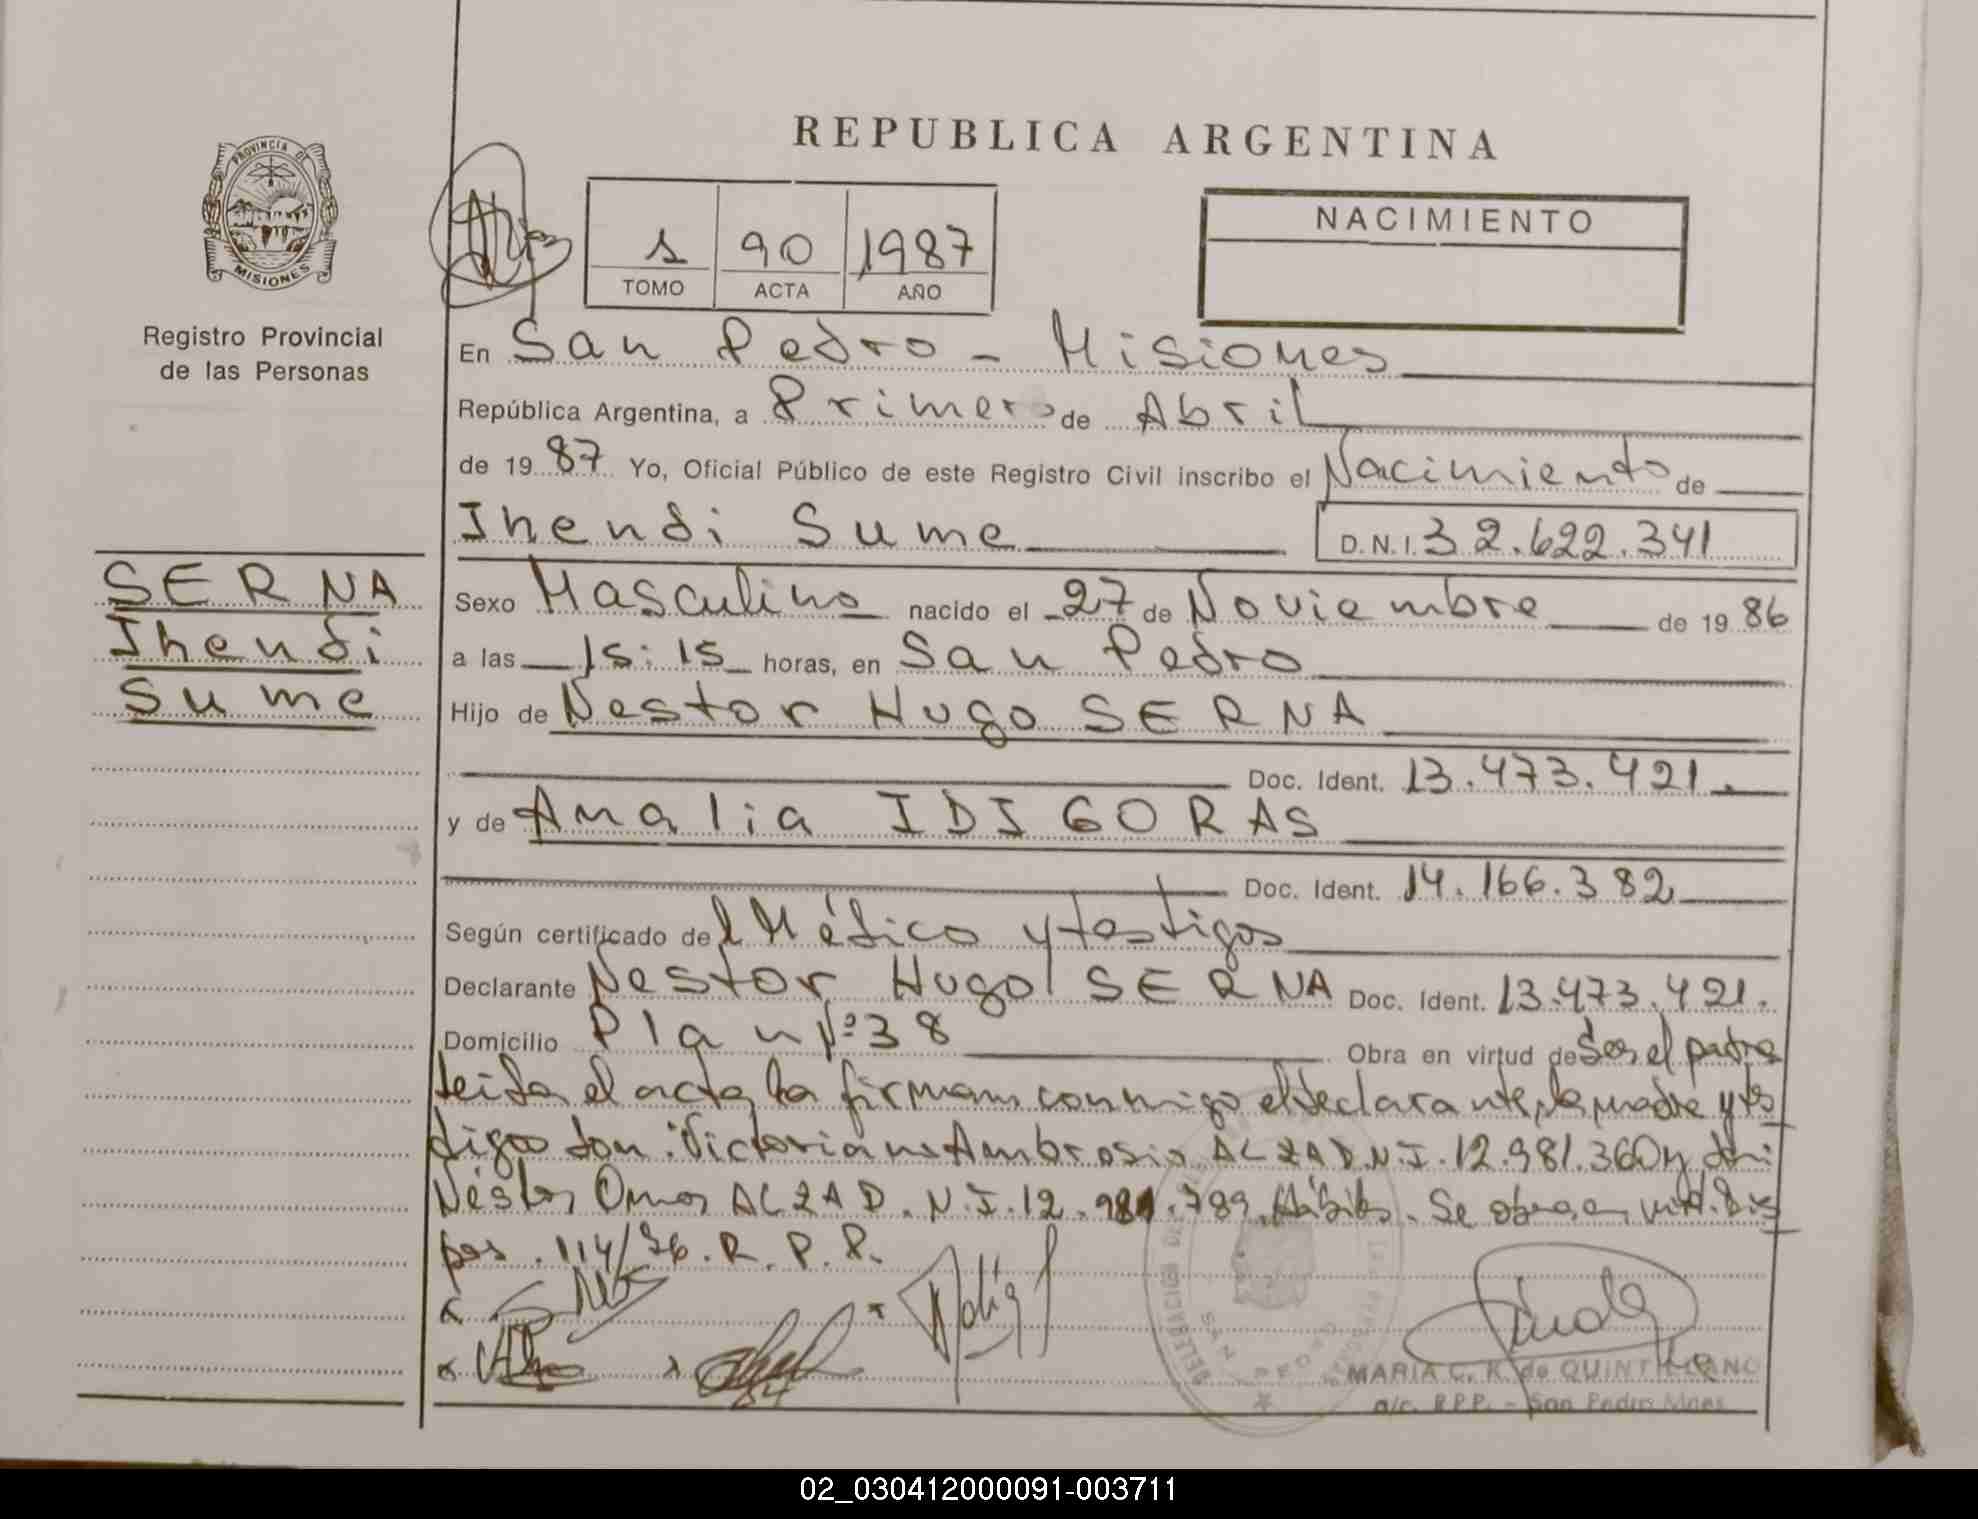 REPUBLICA ARGENTINA
PROVINCIA DE
MISIONES
Registro Provincial
de las Personas
1 90 1987
TOMO ACTA AÑO
NACIMIENTO
En San Pedro - Misiones
República Argentina, a Primero de Abril
de 1987 Yo, Oficial Público de este Registro Civil inscribo el Nacimiento de
Ihendi Sume D.N.I. 32.622.341
SERNA
Ihendi
Sume
Sexo Masculino nacido el 27 de Noviembre de 1986
a las 15:15 horas, en San Pedro
Hijo de Nestor Hugo SERNA
Doc. Ident. 13.473.421.
y de Analia IDIGORAS
Doc. Ident. 14.166.382
Según certificado del Médico y testigos
Declarante Nestor Hugo SERNA Doc. Ident. 13.473.421.
Domicilio Plan Nº 38 Obra en virtud de Ser el padre
leida el acta la firman conmigo el declarante, la madre y tes
tigos don: Victoriano Ambrosio ALZA D.N.I. 12.981.360 y don
Néstor Omar ALZA D.N.I. 12.981.789. Hábiles. Se obra en virt. Dis
pos. 114/76. R.P.P.
DELEGACION DE
SAN PEDRO
MARIA C. K. de QUINTILLANO
a/c. R.P.P. - San Pedro Mnes
02_030412000091-003711